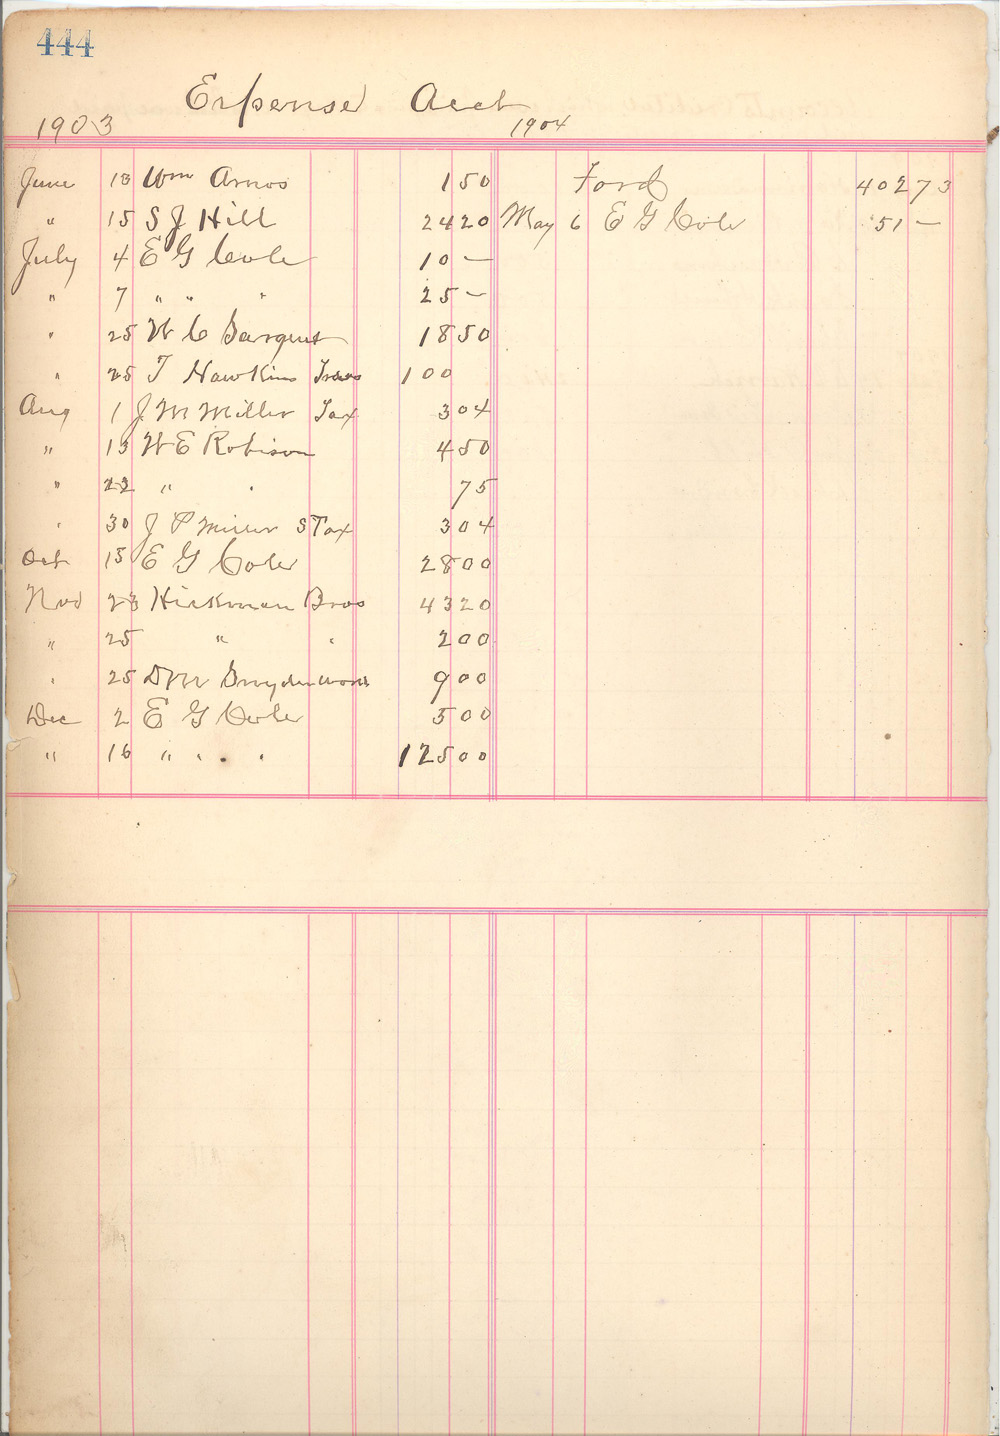 444
Expense Acct
1903
1904
June 13 Wm Amos 1 50
" 15 S J Hill 24 20
July 4 E G Cole 10 —
" 7 " " " 25 —
" 25 W C Sargent 18 50
" 25 T Hawkins 100
Aug 1 J M Miller Tax 3 04
" 13 W E Robison 4 50
" 22 " " 75
" 30 J P Miller S Tax 3 04
Oct 15 E G Cole 28 00
Nov 23 Hickman Bros 43 20
" 25 " " 2 00
" 25 Snyder 9 00
Dec 2 E G Cole 5 00
" 16 " " " " 125 00
Ford 402 73
May 6 E G Cole 51 —